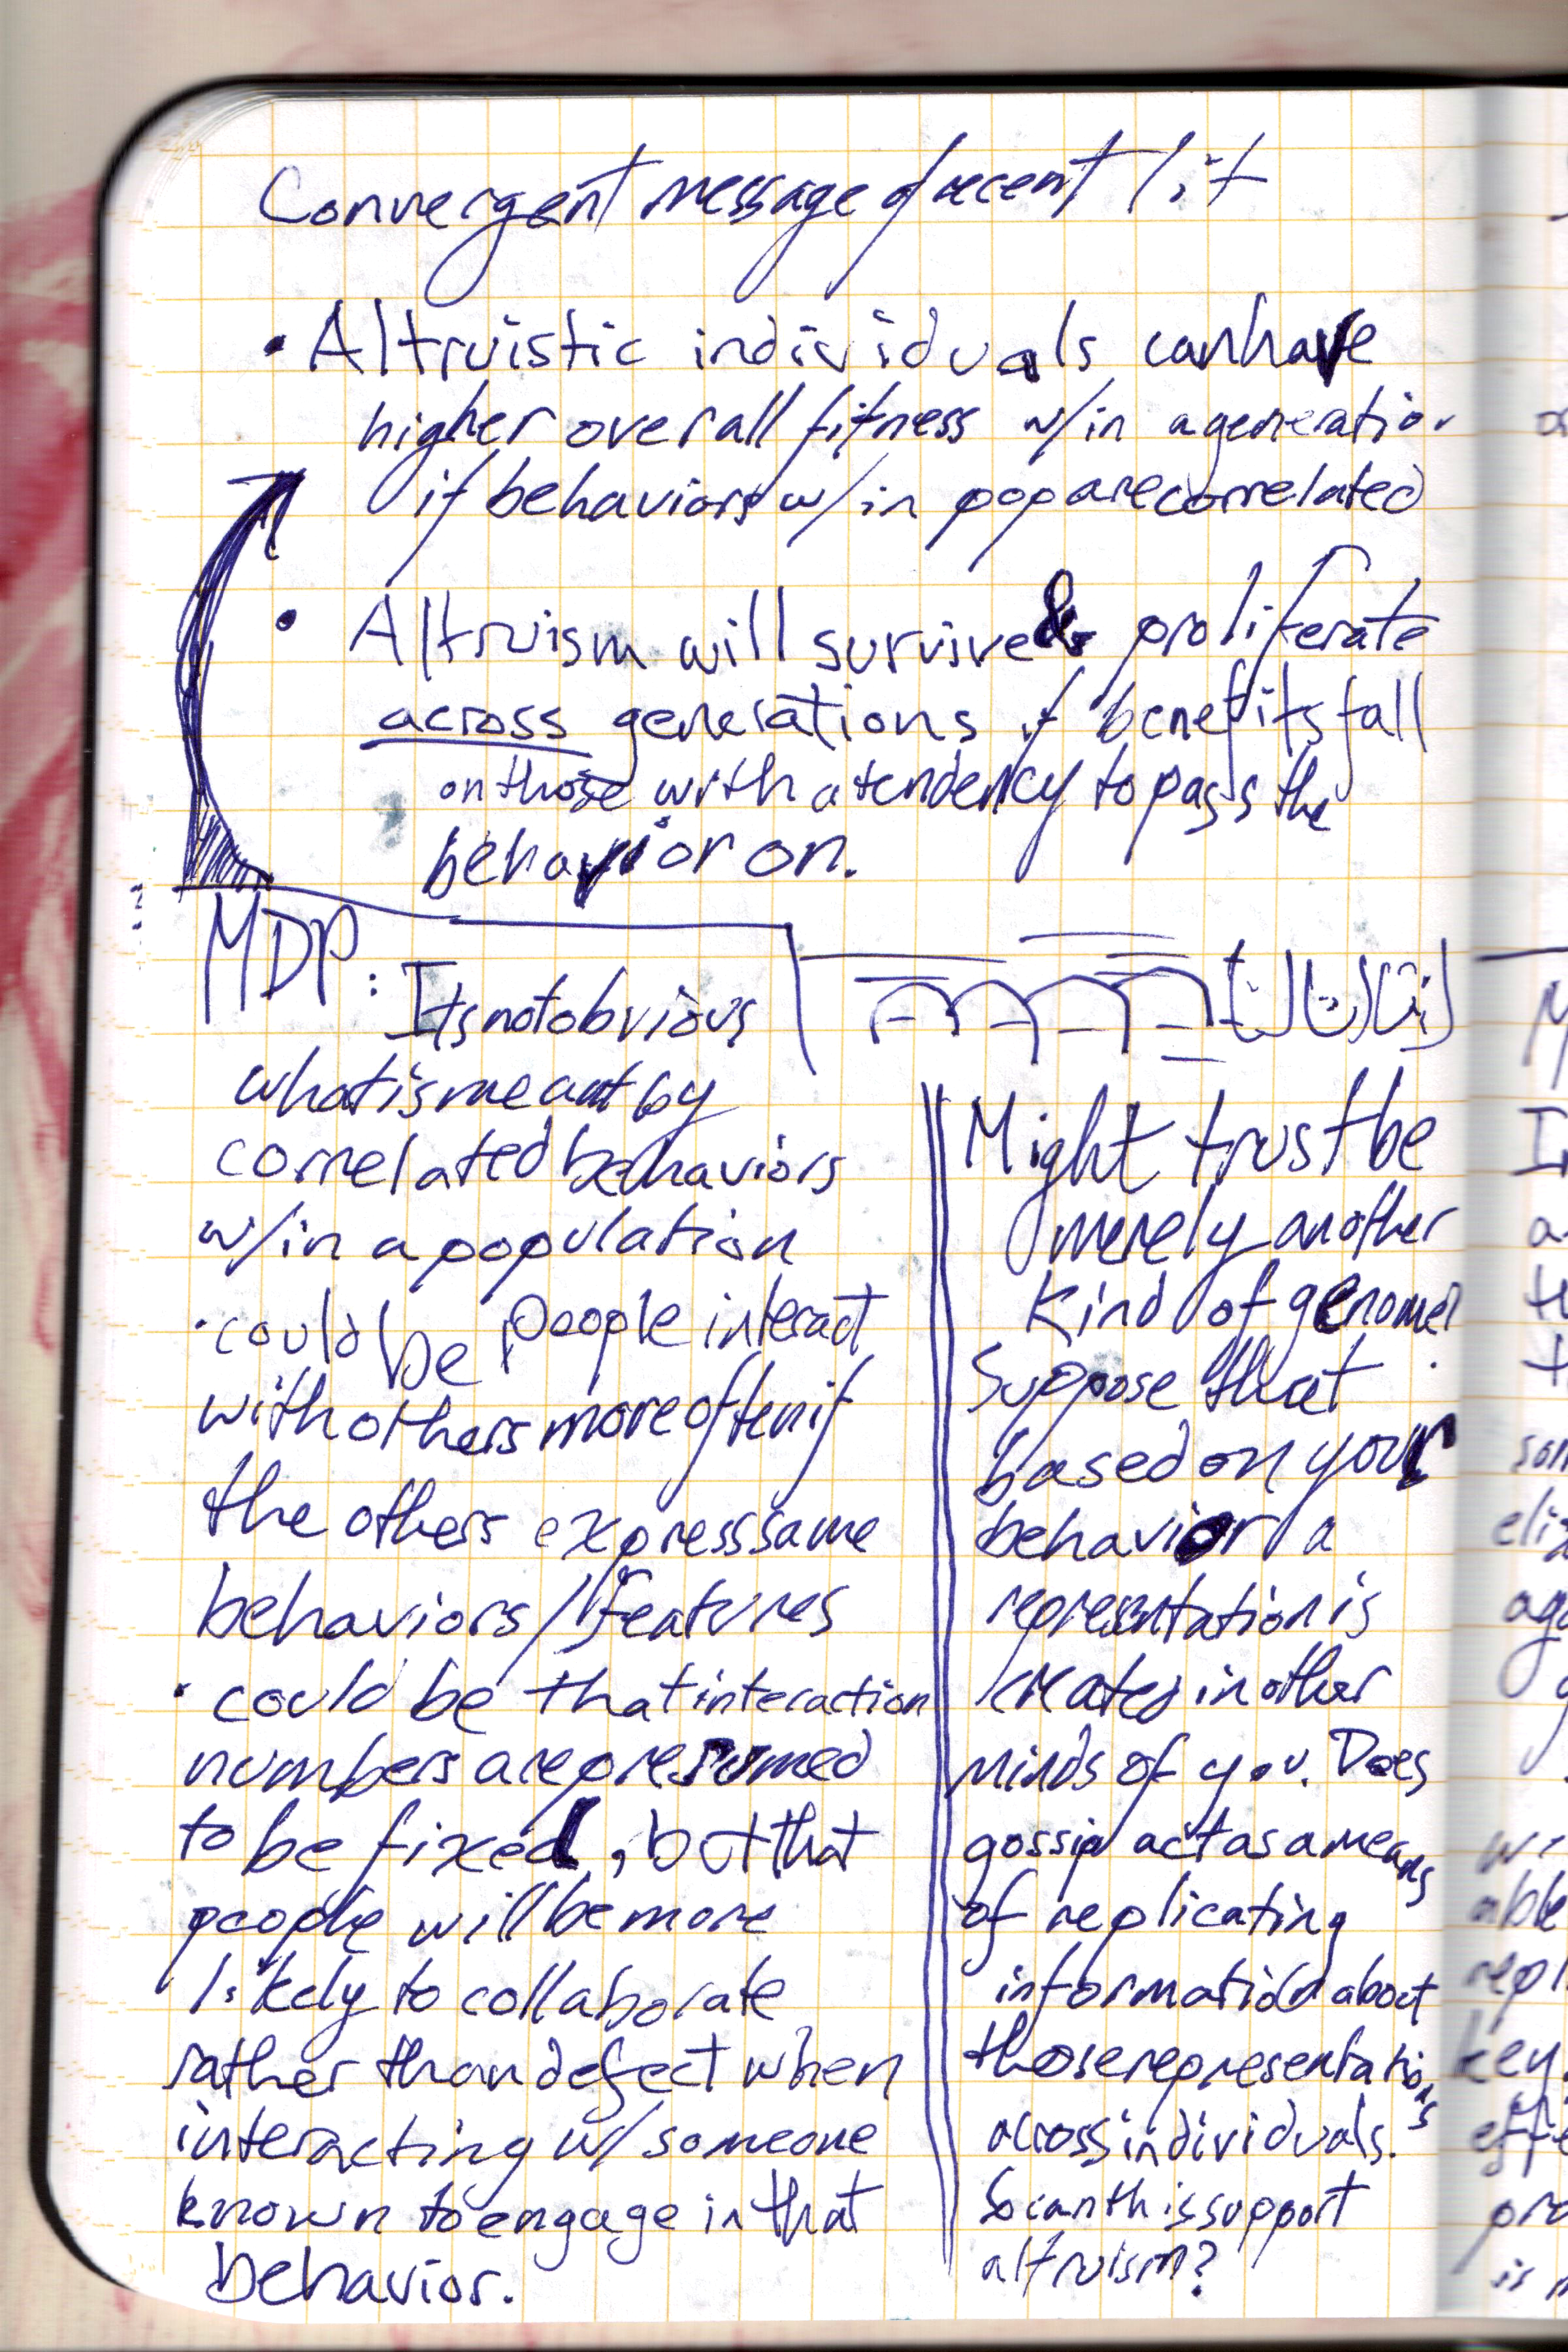 Convergent message of recent lit
• Altruistic individuals can have
higher overall fitness w/in a generation
if behaviors w/in pop are correlated
• Altruism will survive & proliferate
across generations if benefits fall
on those with a tendency to pass the
behavior on.
MDP: Its not obvious
what is meant by
correlated behaviors
w/in a population
• could be people interact
with others more often if
the others express same
behaviors/features
• could be that interaction
numbers are presumed
to be fixed, but that
people will be more
likely to collaborate
rather than defect when
interacting w/ someone
known to engage in that
behavior.
Might trust be
merely another
kind of genome?
Suppose that
based on your
behavior a
representation is
created in other
minds of you. Does
gossip act as a means
of replicating
information about
those representations
across individuals.
So can this support
altruism?